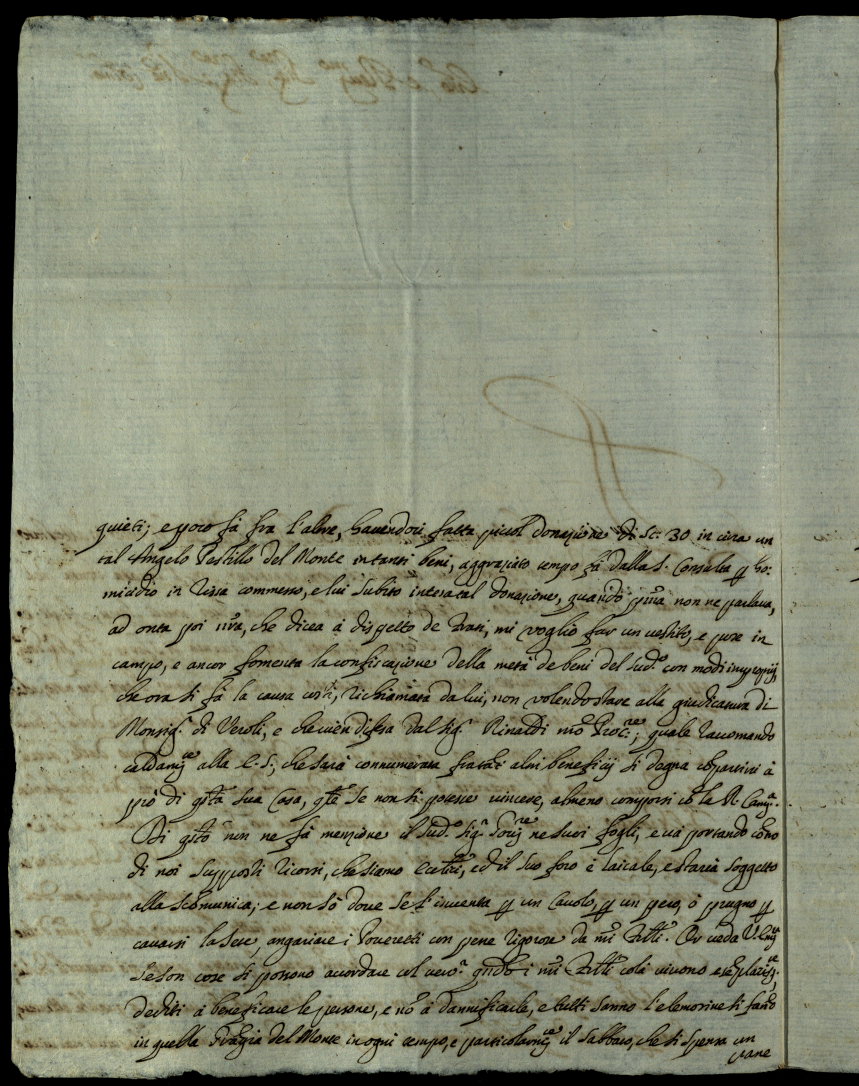 quieti; e poco fà fra l'altre, havendoci fatta piccol donazione di Sc: 30 in circa un
tal Angelo Pestillo del Monte in tanti beni, aggraziato tempo fà dalla S. Consulta ꝑ ho:
micidio in rissa commesso, e lui subito intesa tal donazione, quando pma non ne parlava,
ad onta poi nr̃a, che dicea à dispetto de Frati, mi voglio far un vestito, e pose in
campo, e ancor fomenta la confiscazione della metà de beni del sud.o con modi improprij,
che ora si fà la causa costì, richiamata da lui, non volendo stare alla giudicatura di
Monsig.r di Veroli, e che vien difesa dal Sig.r Rinaldi nr̃o Proc.re; quale raccomando
caldam.te alla E. S., che sarà connumerata fra tanti altri beneficij si degna compartire à
prò di q̃sta sua Casa, q̃le se non si potesse vincere, almeno comporsi cõ la R. Cam.a.
Di q̃sto non ne fà menzione il sud.o Sig.r ne suoi fogli, e và portando cõtro
di noi supposti ricorsi, che siamo Ecc.tici, ed il suo foro è laicale, e staria soggetto
alla scomunica; e non sò dove se l'inventa ꝑ un Cavolo, ꝑ un pero, ò prugno ꝑ
cavarsi la sete, angariare i Poveretti con pene rigorose da nr̃i
se son cose si possono accordare col vero, q̃ndo i nr̃i colà vivono esemplariss.te,
dediti à beneficare le persone, e nõ à dannificarle, e tutti sanno l'elemosine si fanno
in quella del Monte in ogni tempo, e particolarm.te il Sabbato, che si spensa un
pane